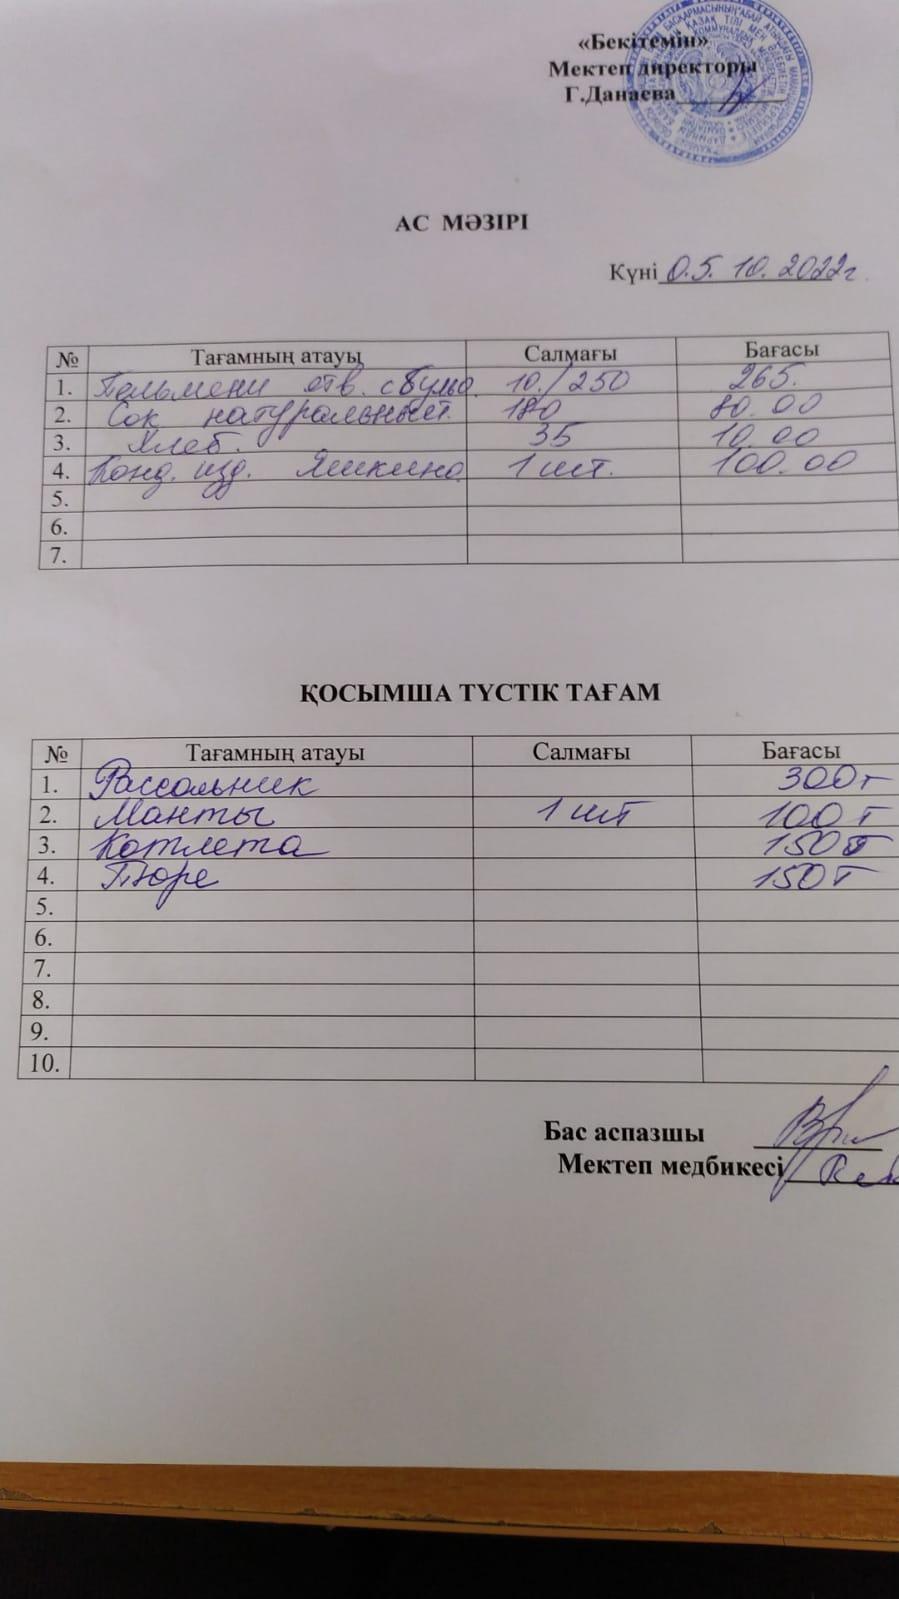 «Бекітемін»
Мектеп директоры
Г.Данаева
АС МӘЗІРІ
Күні 05.10.2022г.
№ Тағамның атауы Салмағы Бағасы
1. Пельмени отв. с бульо. 10./250 265.
2. Сок натуральный. 180 80.00
3. Хлеб. 35 10.00
4. Конд. изд. Яшкино. 1 шт. 100.00
5.
6.
7.
ҚОСЫМША ТҮСТІК ТАҒАМ
№ Тағамның атауы Салмағы Бағасы
1. Рассольник 300т
2. Манты 1 шт 100т
3. Котлета 150т
4. Пюре 150т
5.
6.
7.
8.
9.
10.
Бас аспазшы
Мектеп медбикесі